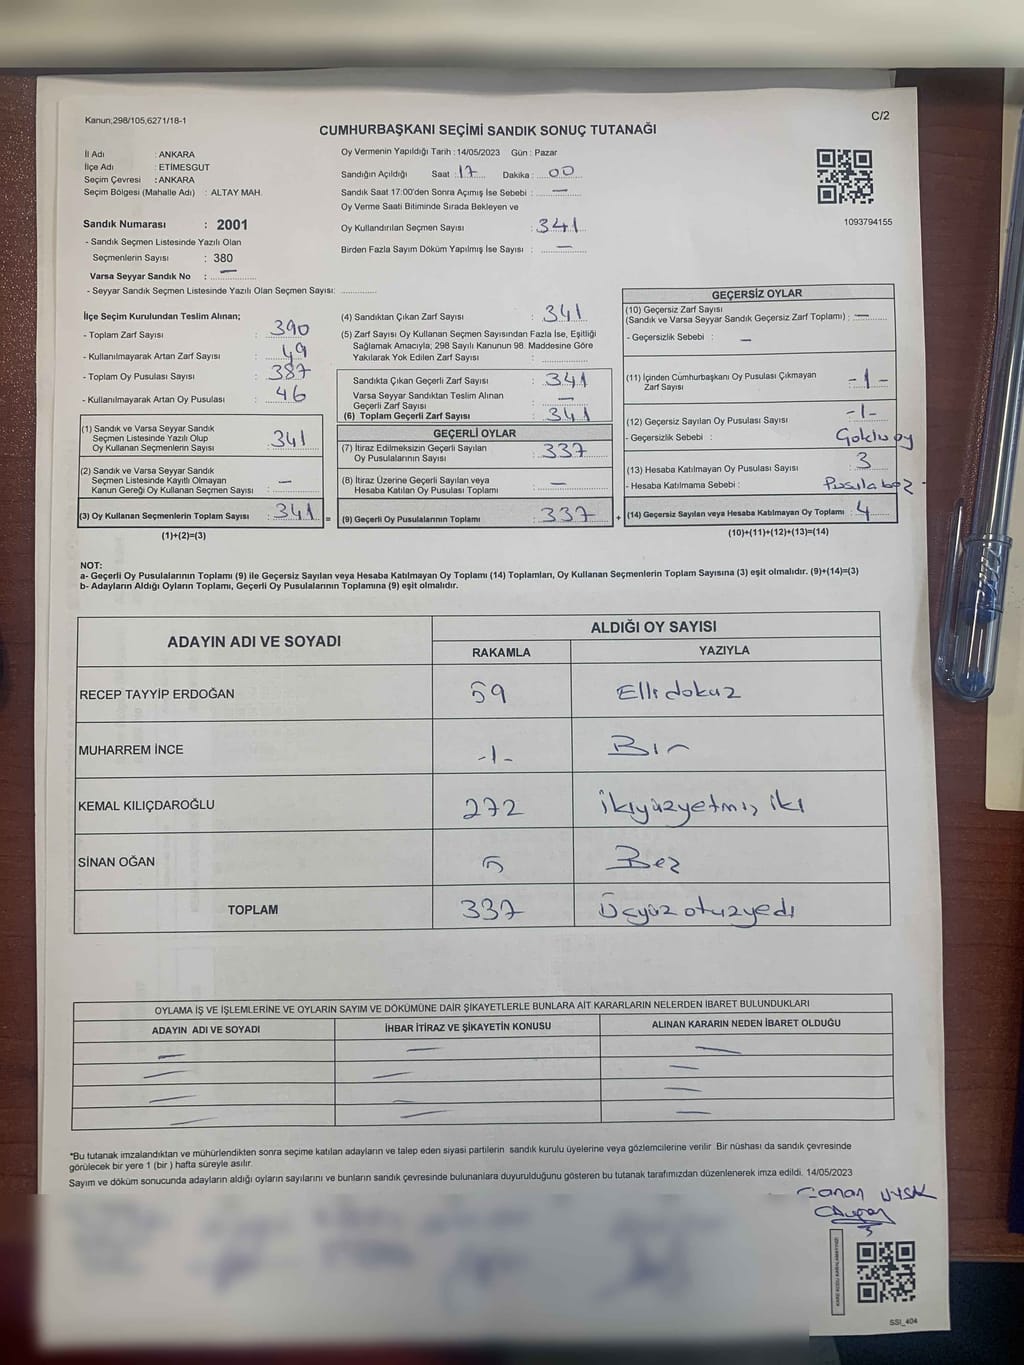 Kanun;298/105,6271/18-1
C/2
CUMHURBAŞKANI SEÇİMİ SANDIK SONUÇ TUTANAĞI
İl Adı : ANKARA
İlçe Adı : ETİMESGUT
Seçim Çevresi : ANKARA
Seçim Bölgesi (Mahalle Adı) : ALTAY MAH.
Sandık Numarası : 2001
- Sandık Seçmen Listesinde Yazılı Olan
Seçmenlerin Sayısı : 380
Varsa Seyyar Sandık No : —
- Seyyar Sandık Seçmen Listesinde Yazılı Olan Seçmen Sayısı:
Oy Vermenin Yapıldığı Tarih :14/05/2023 Gün : Pazar
Sandığın Açıldığı Saat : 17 Dakika : 00
Sandık Saat 17:00'den Sonra Açımış İse Sebebi : —
Oy Verme Saati Bitiminde Sırada Bekleyen ve
Oy Kullandırılan Seçmen Sayısı : 341
Birden Fazla Sayım Döküm Yapılmış İse Sayısı : —
1093794155
İlçe Seçim Kurulundan Teslim Alınan;
- Toplam Zarf Sayısı : 390
- Kullanılmayarak Artan Zarf Sayısı : 49
- Toplam Oy Pusulası Sayısı : 387
- Kullanılmayarak Artan Oy Pusulası : 46
(1) Sandık ve Varsa Seyyar Sandık
Seçmen Listesinde Yazılı Olup
Oy Kullanan Seçmenlerin Sayısı : 341
(2) Sandık ve Varsa Seyyar Sandık
Seçmen Listesinde Kayıtlı Olmayan
Kanun Gereği Oy Kullanan Seçmen Sayısı : —
(3) Oy Kullanan Seçmenlerin Toplam Sayısı : 341 =
(1)+(2)=(3)
(4) Sandıktan Çıkan Zarf Sayısı : 341
(5) Zarf Sayısı Oy Kullanan Seçmen Sayısından Fazla İse, Eşitliği
Sağlamak Amacıyla; 298 Sayılı Kanunun 98. Maddesine Göre
Yakılarak Yok Edilen Zarf Sayısı :
Sandıkta Çıkan Geçerli Zarf Sayısı : 341
Varsa Seyyar Sandıktan Teslim Alınan
Geçerli Zarf Sayısı : —
(6) Toplam Geçerli Zarf Sayısı : 341
GEÇERLİ OYLAR
(7) İtiraz Edilmeksizin Geçerli Sayılan
Oy Pusulalarının Sayısı : 337
(8) İtiraz Üzerine Geçerli Sayılan veya
Hesaba Katılan Oy Pusulası Toplamı : —
(9) Geçerli Oy Pusulalarının Toplamı : 337 +
GEÇERSİZ OYLAR
(10) Geçersiz Zarf Sayısı
(Sandık ve Varsa Seyyar Sandık Geçersiz Zarf Toplamı) : —
- Geçersizlik Sebebi : —
(11) İçinden Cumhurbaşkanı Oy Pusulası Çıkmayan
Zarf Sayısı : -1-
(12) Geçersiz Sayılan Oy Pusulası Sayısı : -1-
- Geçersizlik Sebebi : oy
(13) Hesaba Katılmayan Oy Pusulası Sayısı : 3
- Hesaba Katılmama Sebebi : Pusula boz
(14) Geçersiz Sayılan veya Hesaba Katılmayan Oy Toplamı : 4
(10)+(11)+(12)+(13)=(14)
NOT:
a- Geçerli Oy Pusulalarının Toplamı (9) ile Geçersiz Sayılan veya Hesaba Katılmayan Oy Toplamı (14) Toplamları, Oy Kullanan Seçmenlerin Toplam Sayısına (3) eşit olmalıdır. (9)+(14)=(3)
b- Adayların Aldığı Oyların Toplamı, Geçerli Oy Pusulalarının Toplamına (9) eşit olmalıdır.
ADAYIN ADI VE SOYADI
ALDIĞI OY SAYISI
RAKAMLA YAZIYLA
RECEP TAYYİP ERDOĞAN 59 Elli dokuz
MUHARREM İNCE -1- Bir
KEMAL KILIÇDAROĞLU 272 İkiyüzyetmiş iki
SİNAN OĞAN 5 Beş
TOPLAM 337 Üçyüz otuzyedi
OYLAMA İŞ VE İŞLEMLERİNE VE OYLARIN SAYIM VE DÖKÜMÜNE DAİR ŞİKAYETLERLE BUNLARA AİT KARARLARIN NELERDEN İBARET BULUNDUKLARI
ADAYIN ADI VE SOYADI İHBAR İTİRAZ VE ŞİKAYETİN KONUSU ALINAN KARARIN NEDEN İBARET OLDUĞU
*Bu tutanak imzalandıktan ve mühürlendikten sonra seçime katılan adayların ve talep eden siyasi partilerin sandık kurulu üyelerine veya gözlemcilerine verilir. Bir nüshası da sandık çevresinde
görülecek bir yere 1 (bir ) hafta süreyle asılır.
Sayım ve döküm sonucunda adayların aldığı oyların sayılarını ve bunların sandık çevresinde bulunanlara duyurulduğunu gösteren bu tutanak tarafımızdan düzenlenerek imza edildi. 14/05/2023
SSI_404